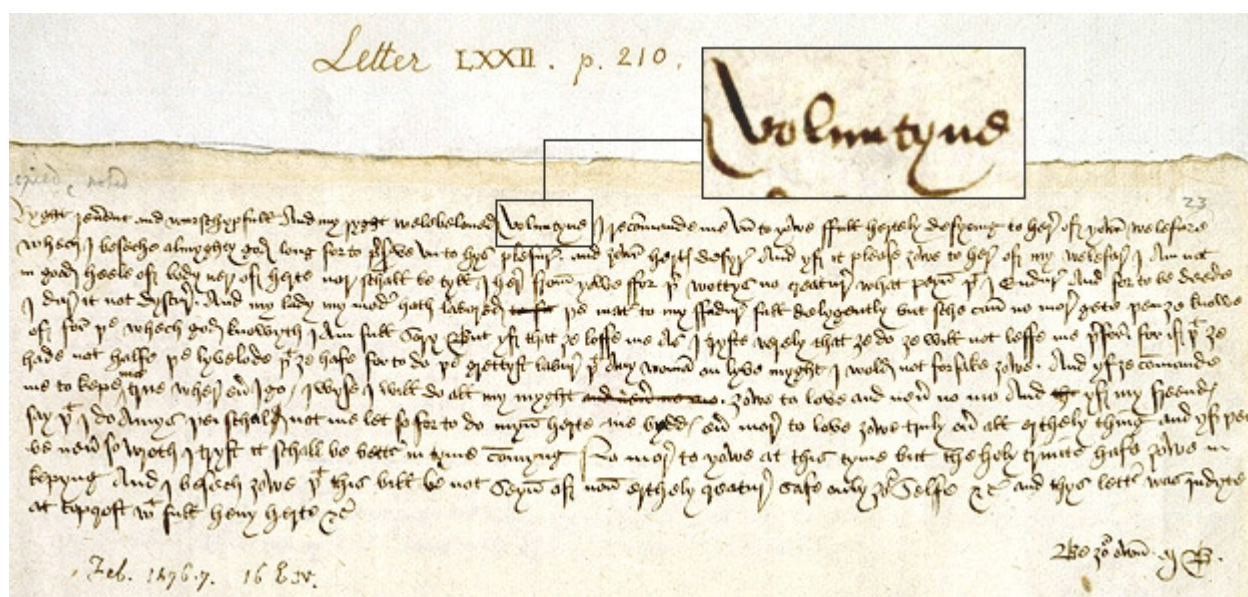 Letter LXXII. p. 210.
Voluntyne
23
Ryght reuerent and wurschypfull And my ryght welebeloued Voluntyne I recommande me vn to yowe ffull hertely desyring to here off yowr welefare
whech I beseche almyghty god long for to preserve vn to hys plesure and yowr hertes desyre And yff it please yowe to here off my welefare I Am not
in good heele off body ner off herte nor schall be tyll I here ffrom yowe ffor þer wottys no creature what peyn þat I Endure And for to be deede
I dare it not dyscure And my lady my moder hath labored þe mater to my ffadur full delygently but sche can no more gete þen ȝe knowe
off for þe whech god knowyth I Am full Sory But yff that ȝe loffe me As I tryste verely that ȝe do ȝe will not leffe me þerfor for iff þat ȝe
hade not halfe þe lyvelode þat ȝe hafe for to do þe grettyst labur þat Any woman on lyve myght I wold not forsake ȝowe. And yf ȝe commande
me to kepe me true wher euer I go I wyse I will do all my myght ȝowe to love and neuer no mo And yff my freendes
say þat I do Amys þei schall not me let so for to do myn herte me byddes euer more to love ȝowe truly ouer all erthely thing and yff þei
be neuer so wroth I tryst it schall be better in tyme comyng No more to yowe at this tyme but the holy trinite hafe yowe in
kepyng And I besech ȝowe þat this bill be not Seyn off non erthely creature Safe only your Selfe &c and thys letter was jndyte
at topcroft with full heuy herte &c
Be your own M B.
Feb. 1476.7. 16 E.IV.